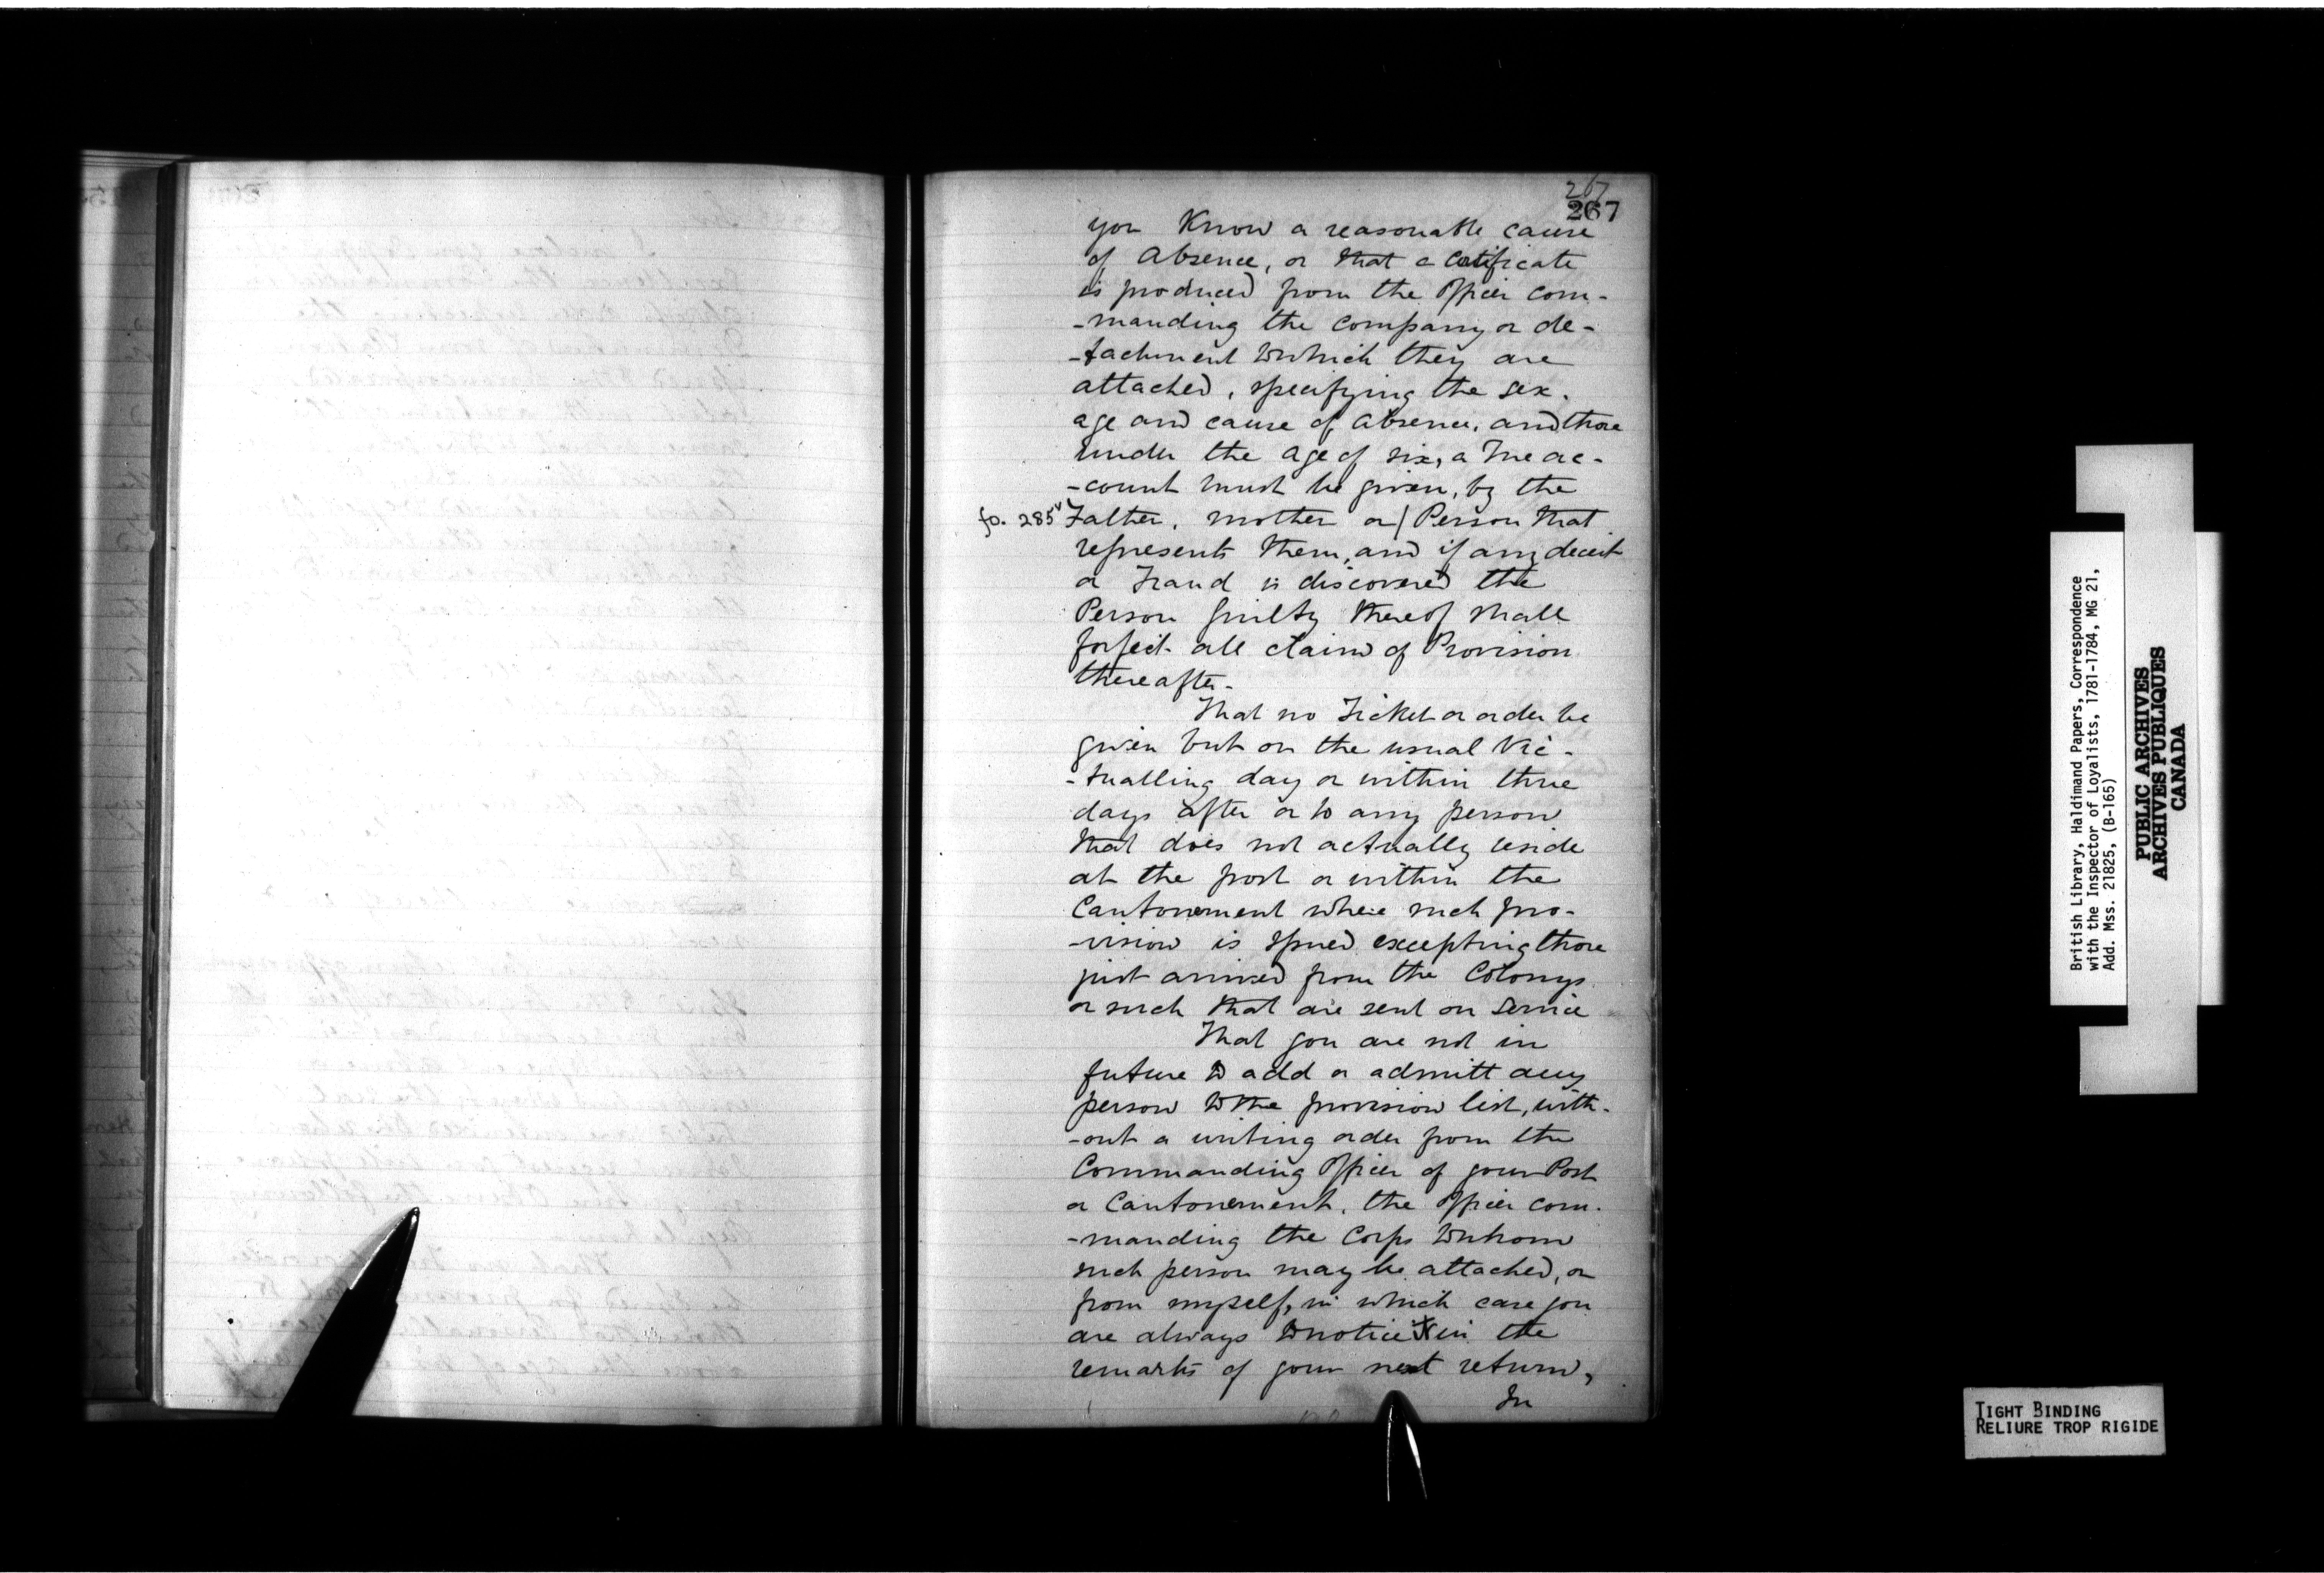 267
267
you Know a reasonable cause
of Absence, or that a Certificate
is produced from the Officer com-
-manding the Company or de-
-tachment to which they are
attached, specifying the sex,
age and cause of Absence, and those
under the age of six, a true ac-
-count must be given, by the
fo. 285v Father, mother or/ Person that
represents them, and if any deceit
or Fraud is discovered the
Person guilty thereof shall
forfeit all claim of Provision
thereafter-
That no Ticket or order be
given but on the usual Vic-
-tualling day or within three
days after or to any person
that does not actually reside
at the post or within the
Cantonement where such pro-
-vision is issued excepting those
just arrived from the Colonys
or such that are sent on Service
That you are not in
future to add or admitt any
person to the provision list, with-
-out a writing order from the
Commanding Officer of your Post
or Cantonement, the Officer com-
-manding the Corps to whom
such person may be attached, or
from myself, in which case you
are always to notice it in the
remarks of your next return,
In
British Library, Haldimand Papers, Correspondence
with the Inspector of Loyalists, 1781-1784, MG 21,
Add. Mss. 21825, (B-165)
PUBLIC ARCHIVES
ARCHIVES PUBLIQUES
CANADA
TIGHT BINDING
RELIURE TROP RIGIDE